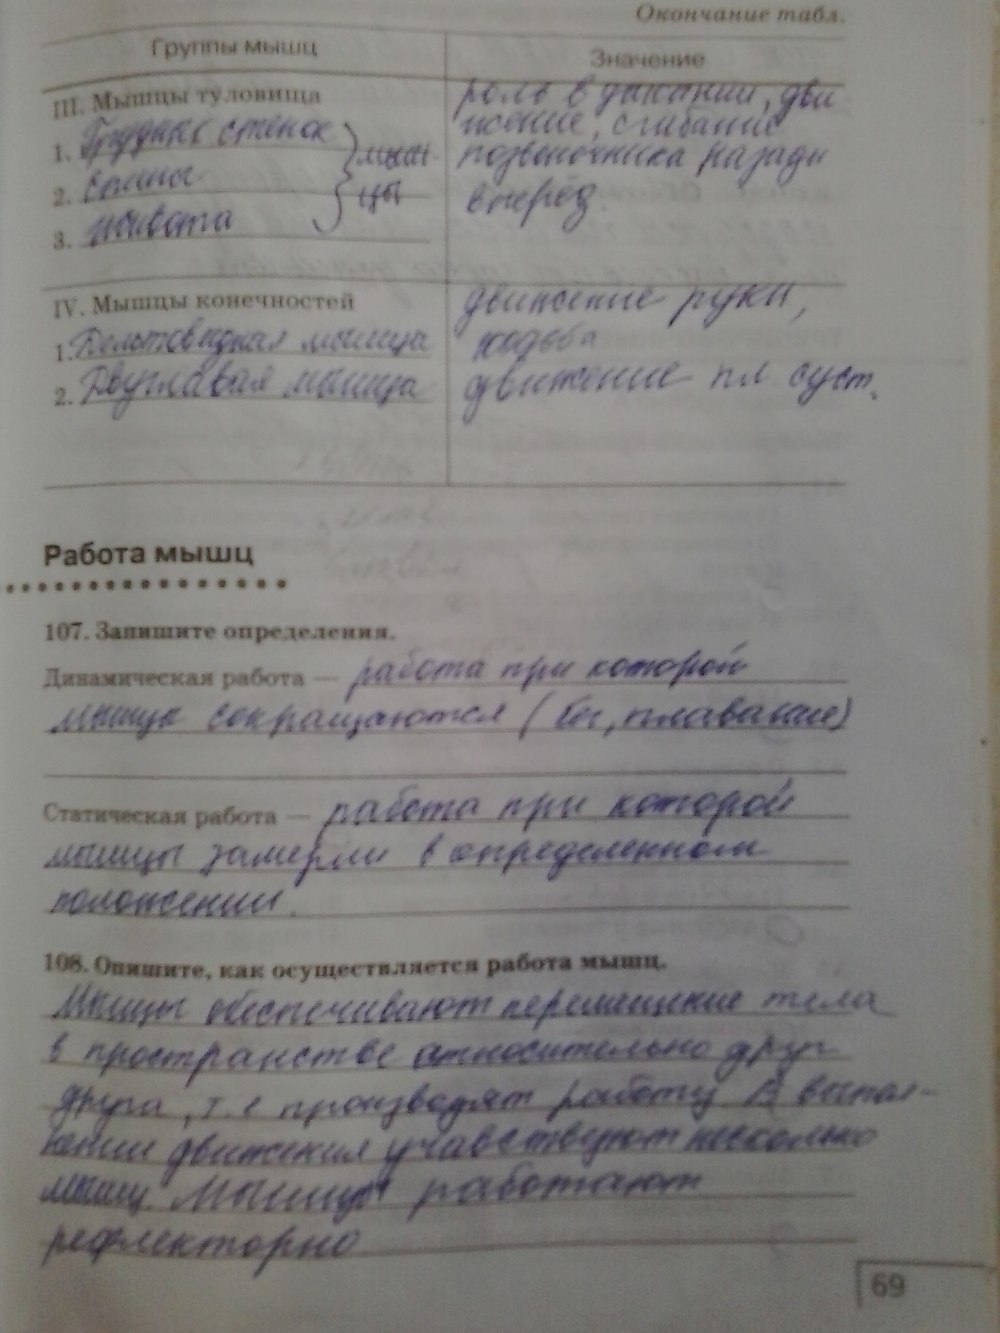 Окончание табл.
Группы мышц
Значение
III. Мышцы туловища
1. Грудных стенок
2. спины
3. живота
мыш-
цы
роль в дыхании, дви
жение, сгибание
позвоночника назад и
вперёд.
IV. Мышцы конечностей
1. Дельтовидная мышца
2. Двуглавая мышца
движение руки,
ходьба
движение пл. суст.
Работа мышц
107. Запишите определения.
Динамическая работа — работа при которой
мышцы сокращаются (бег, плавание)
Статическая работа — работа при которой
мышцы замерли в определенном
положении.
108. Опишите, как осуществляется работа мышц.
Мышцы обеспечивают перемещение тела
в пространстве относительно друг
друга, т.е производят работу В выпол-
нении движения учавствуют несколько
мышц. Мышцы работают
рефлекторно
69